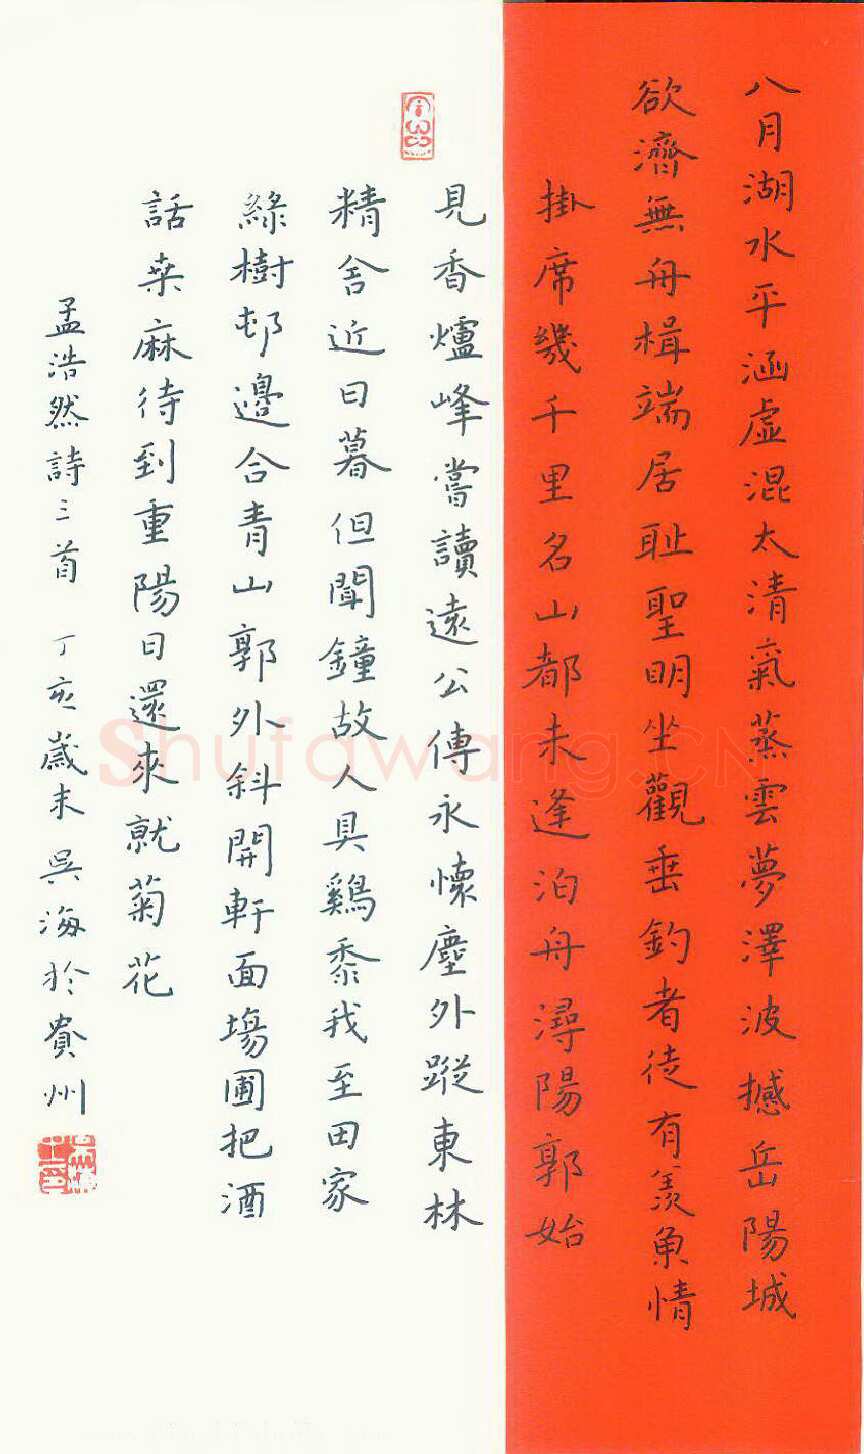 八月湖水平涵虛混太清氣蒸雲夢澤波撼岳陽城
欲濟無舟楫端居耻聖明坐觀垂釣者徒有羨魚情
掛席幾千里名山都未逢泊舟潯陽郭始
見香爐峰嘗讀遠公傳永懷塵外蹤東林
精舍近日暮但聞鐘故人具鷄黍我至田家
綠樹邨邊合青山郭外斜開軒面場圃把酒
話桑麻待到重陽日還來就菊花
孟浩然詩三首 丁亥歲末吳海於貴州
Shufawang.CN